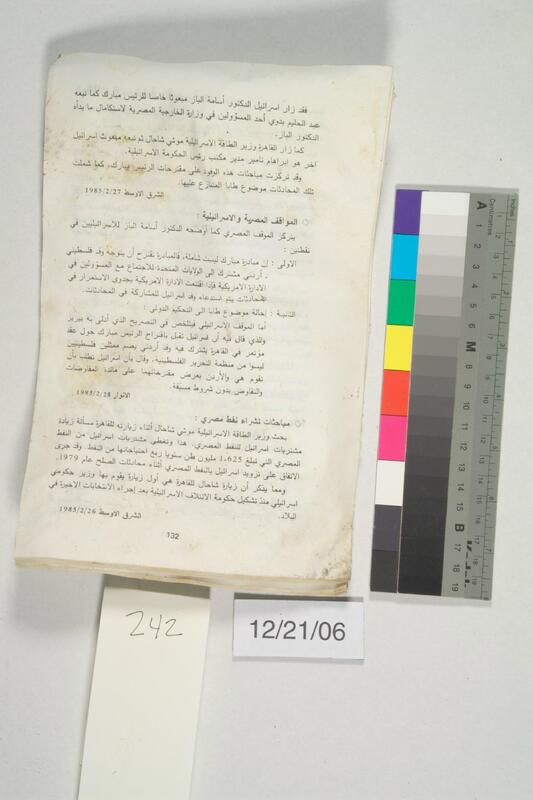 فقد زار اسرائيل الدكتور أسامة الباز مبعوثا خاصا للرئيس مبارك كما تبعه
عبد الحليم بدوي أحد المسؤولين في وزارة الخارجية المصرية لاستكمال ما بدأه
الدكتور الباز.
كما زار القاهرة وزير الطاقة الاسرائيلية موشي شاحال ثم تبعه مبعوث اسرائيل
اخر هو ابراهام تامير مدير مكتب رئيس الحكومة الاسرائيلية.
وقد تركزت مباحثات هذه الوفود على مقترحات الرئيس مبارك، كما شملت
تلك المحادثات موضوع طابا المتنازع عليها.
الشرق الاوسط 1985/2/27
○ المواقف المصرية والاسرائيلية :
يتركز الموقف المصري كما أوضحه الدكتور أسامة الباز للاسرائيليين في
نقطتين :
الاولى : إن مبادرة مبارك ليست شاملة، فالمبادرة تقترح أن يتوجه وفد فلسطيني
ـ أردني مشترك الى الولايات المتحدة للاجتماع مع المسؤولين في
الادارة الامريكية فإذا اقتنعت الادارة الامريكية بجدوى الاستمرار في
المحادثات يتم استدعاء وفد اسرائيل للمشاركة في المحادثات.
الثانية : إحالة موضوع طابا الى التحكيم الدولي :
أما الموقف الاسرائيلي فيتلخص في التصريح الذي أدلى به بيريز
والذي قال فيه أن اسرائيل تقبل باقتراح الرئيس مبارك حول عقد
مؤتمر في القاهرة يشترك فيه وفد أردني يضم ممثلين فلسطينيين
ليسوا من منظمة التحرير الفلسطينية. وقال بأن اسرائيل تطلب بأن
تقوم هي والأردن بعرض مقترحاتهما على مائدة المفاوضات
والتفاوض بدون شروط مسبقة.
الانوار 1985/2/28
○ مباحثات لشراء نفط مصري :
بحث وزير الطاقة الاسرائيلية موشي شاحال أثناء زيارته للقاهرة مسألة زيادة
مشتريات اسرائيل للنفط المصري. هذا وتغطي مشتريات اسرائيل من النفط
المصري التي تبلغ 1,625 مليون طن سنويا ربع احتياجاتها من النفط. وقد جرى
الاتفاق على تزويد اسرائيل بالنفط المصري أثناء محادثات الصلح عام 1979.
ومما يذكر أن زيارة شاحال للقاهرة هي أول زيارة يقوم بها وزير حكومي
اسرائيلي منذ تشكيل حكومة الائتلاف الاسرائيلية بعد إجراء الانتخابات الاخيرة في
البلاد.
الشرق الاوسط 1985/2/26
132
242
12/21/06
Centimetres
Inches
A
1
2
3
4
5
6
M
8
9
10
11
12
13
14
15
B
17
18
19